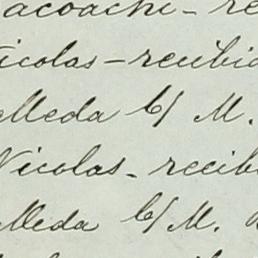 acoachi - re
icolas - recibi
lleda C/ M.
Nicolas - recib
lleda C/ M.